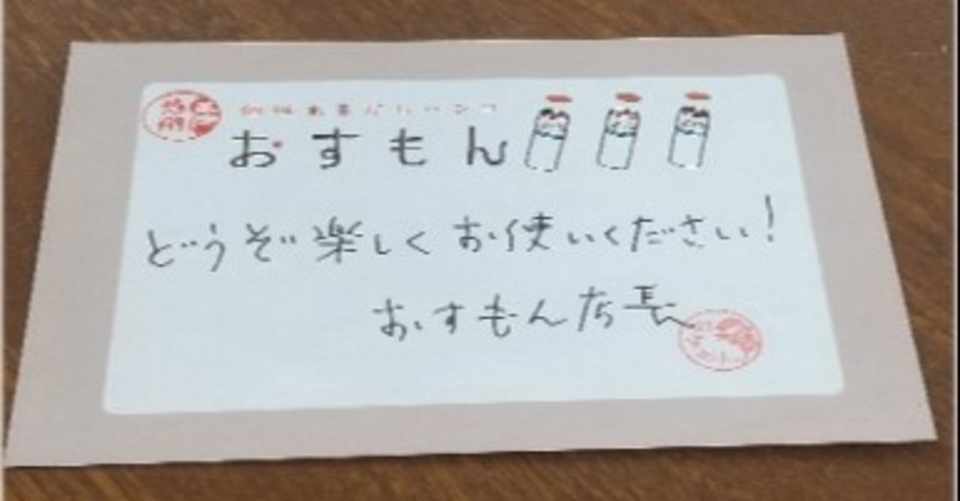 おすもん
どうぞ楽しくお使いください!
おすもん店長